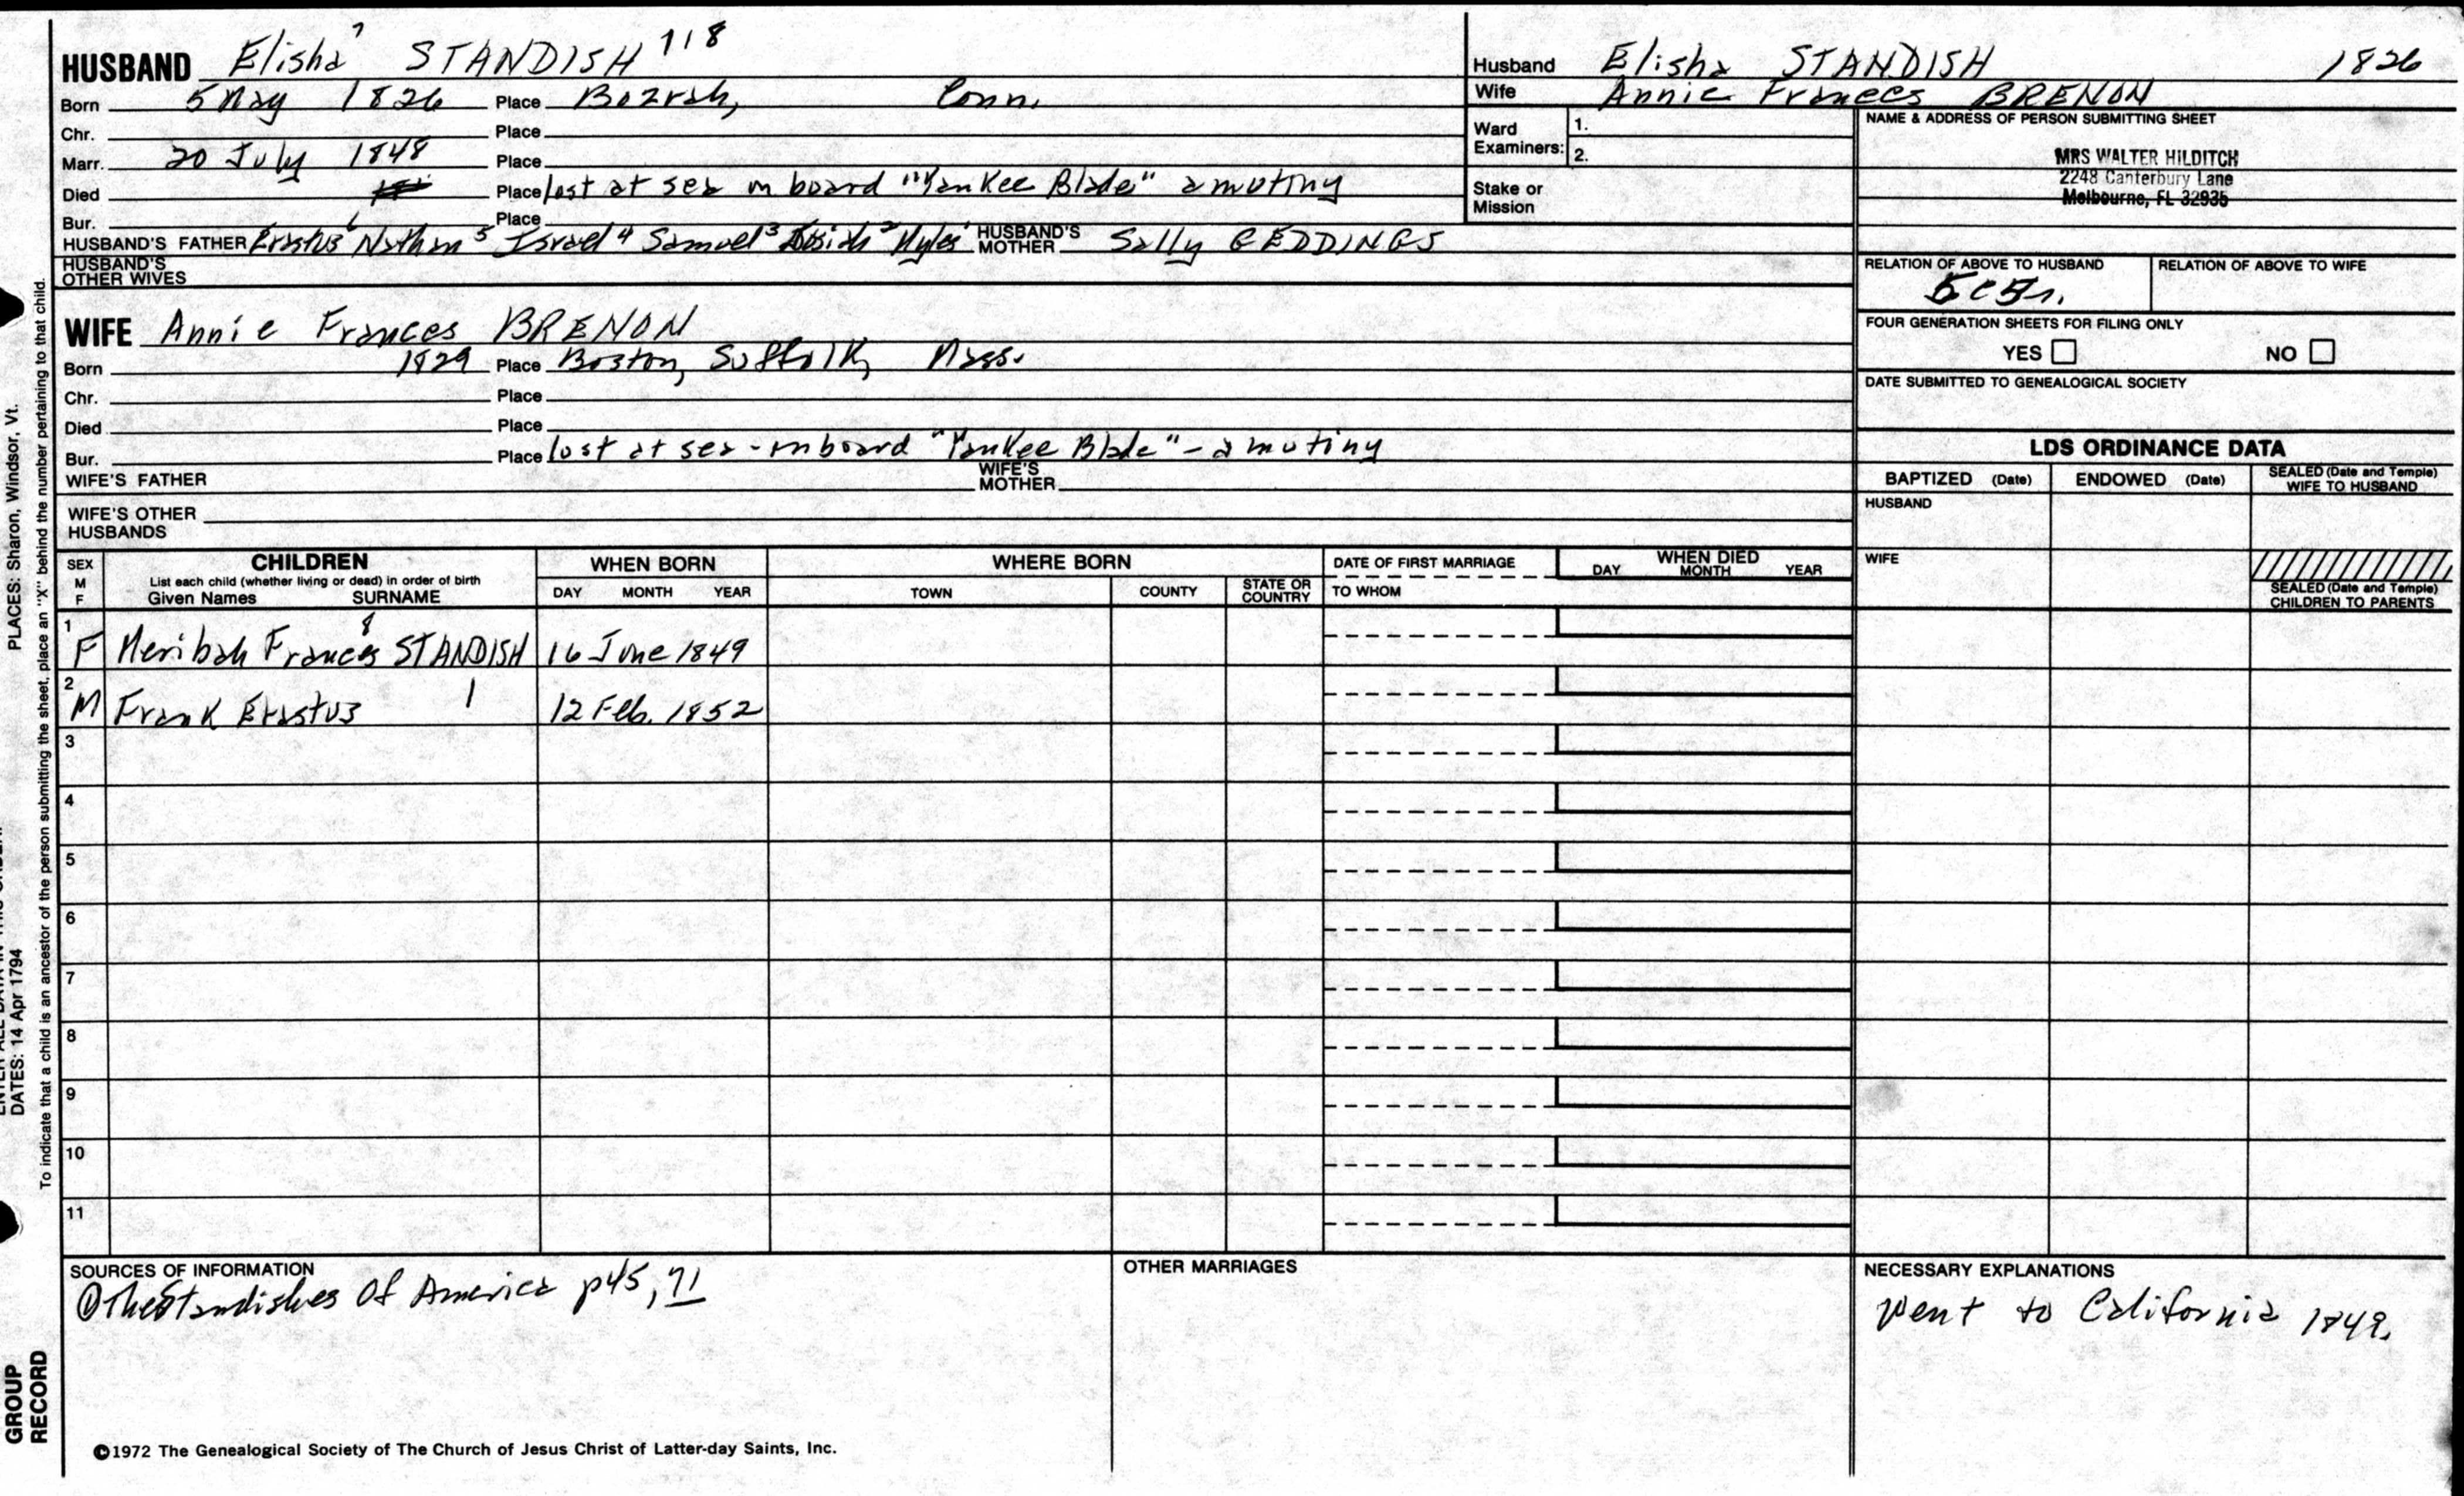 HUSBAND Elisha 7 STANDISH 118
Born 5 May 1826 Place Bozrah, Conn.
Chr. Place
Marr. 20 July 1848 Place
Died Place lost at sea on board "Yankee Blade" a mutiny
Bur. Place
HUSBAND'S FATHER Erastus 6 Nathan 5 Israel 4 Samuel 3 Josiah 2 Myles 1 HUSBAND'S MOTHER Sally GEDDINGS
HUSBAND'S OTHER WIVES
WIFE Annie Frances BRENON
Born 1829 Place Boston, Suffolk, Mass.
Chr. Place
Died Place
Bur. Place lost at sea - on board "Yankee Blade" - a mutiny
WIFE'S FATHER WIFE'S MOTHER
WIFE'S OTHER HUSBANDS
Husband Elisha STANDISH 1826
Wife Annie Frances BRENON
Ward Examiners: 1.
2.
Stake or Mission
NAME & ADDRESS OF PERSON SUBMITTING SHEET
MRS WALTER HILDITCH
2248 Canterbury Lane
Melbourne, FL 32935
RELATION OF ABOVE TO HUSBAND RELATION OF ABOVE TO WIFE
FOUR GENERATION SHEETS FOR FILING ONLY
YES NO
DATE SUBMITTED TO GENEALOGICAL SOCIETY
LDS ORDINANCE DATA
BAPTIZED (Date) ENDOWED (Date) SEALED (Date and Temple) WIFE TO HUSBAND
HUSBAND
WIFE
SEALED (Date and Temple) CHILDREN TO PARENTS
SEX M F
CHILDREN
List each child (whether living or dead) in order of birth
Given Names SURNAME
WHEN BORN
DAY MONTH YEAR
WHERE BORN
TOWN COUNTY STATE OR COUNTRY
DATE OF FIRST MARRIAGE
TO WHOM
WHEN DIED
DAY MONTH YEAR
1 F Meribah Frances 8 STANDISH 16 June 1849
2 M Frank Erastus 12 Feb. 1852
3
4
5
6
7
8
9
10
11
SOURCES OF INFORMATION
① The Standishes Of America p45, 71
OTHER MARRIAGES
NECESSARY EXPLANATIONS
Went to California 1849.
©1972 The Genealogical Society of The Church of Jesus Christ of Latter-day Saints, Inc.
PLACES: Sharon, Windsor, Vt.
DATES: 14 Apr 11794
To indicate that a child is an ancestor of the person submitting the sheet, place an "X" behind the number pertaining to that child.
GROUP
RECORD